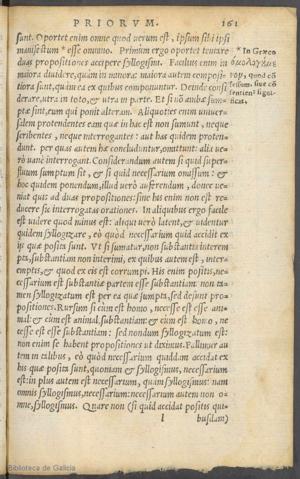 PRIORVM. 161
sunt. Oportet enim omne quod uerum est, ipsum sibi ipsi
manifestum * esse omnino. Primùm ergo oportet tentare
duas propositiones accipere syllogismi. Facilius enim in
maiora diuidere, quàm in minora: maiora autem composi-
tiora sunt, quàm ea ex quibus componuntur. Deinde consi
derare, utra in toto, & utra in parte. Et si nõ ambæ sum-
ptæ sunt, eum qui ponit alteram. Aliquoties enim uniuer-
salem protendentes eam quæ in hac est non sumunt, neque
scribentes, neque interrogantes: aut has quidem proten-
dunt. per quas autem hæ concluduntur, omittunt: aliæ ue-
rò uanè interrogant. Considerandum autem si quid super-
fluum sumptum sit, & si quid necessarium omissum: &
hoc quidem ponendum, illud uerò auferendum, donec ue-
niat quis ad duas propositiones: sine his enim non est re-
ducere sic interrogatas orationes. In aliquibus ergo facile
est uidere quod minus est: aliqui uerò latent, & uidentur
quidem syllogizare, eò quòd necessarium quid accidit ex
ijs quæ posita sunt. Vt si sumatur, non substantia interem
pta, substantiam non interimi, ex quibus autem est, interem-
ptis, & quod ex eis est corrumpi. His enim positis, ne-
cessarium est substantiæ partem esse substantiam: non ta-
men syllogizatum est per ea quæ sumpta, sed desunt pro-
positiones. Rursum si cùm est homo, necesse est esse ani-
mal: & cùm est animal, substantiam: & cùm est homo, ne
cesse est esse substantiam: sed nondum syllogizatum est:
non enim se habent propositiones ut diximus. Fallimur au
tem in talibus, eò quòd necessarium quiddam accidat ex
his quæ posita sunt, quoniam & syllogismus, necessarium
est: in plus autem est necessarium, quàm syllogismus: nam
omnis syllogismus, necessarium: necessarium autem non o-
mne, syllogismus. Quare non (si quid accidat positis qui-
l busdam)
* In Græco
tentiẽs signi-
ficat.
Biblioteca de Galicia